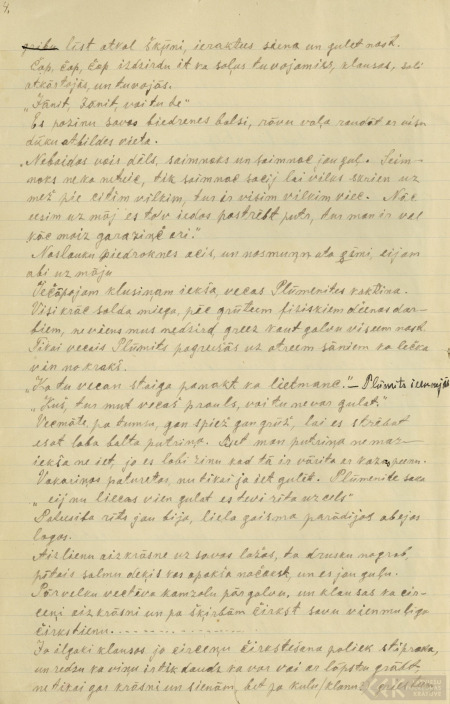 4.
gribu līst atkal šķūnī, ierakties sienā un gulēt nost.
Čap, čap, čap izdzirdu it kā soļus tuvojamies, klausos, soļi
atkārtojās, un tuvojās.
„Jānit, Janit, vai tu še"
Es pazinu savas biedrenes balsi, rāvu vaļā raudāt ar visu
dūku atbildes vietā.
„Nebaidos vairs dēls, saimnoks un saimnoc jau guļ. Saim-
noks neko neteic, tik saimnoc sacij lai vilus skrien uz
mež pie citim vilkim, tur ir visim vilkim viet. Nāc
iesim uz māj es tov iedos pastrēbt putr, tur man ir vēl
kāc maiz garaziņč ari."
Noslauku piedroknes acis, un nosmurgu ato šņni, eijam
abi uz māju
Iečāpojam klusiņam iekša, vecas Plūmenites kaktiņa.
Visi krāc salda miega, pēc grūtiem fiziskiem dienas dar-
biem, neviens mus nedzird, greez kaut galvu visiem nost.
Tikai vecais Plūmits pagreižās uz otreem sāniem ka ločka
vin nokrakš.
„Ko tu vecan staiga pamakt ka lietmane." – Plūmits ierunājās
„Kuš, tur mut vecas prauls, vai tu nevar gulet."
Vecmāte pa tumsu, gan spiež gan grūž, lai es strēbat
esot laba balta putriņa. Bet man putriņa ne mar-
iekša ne iet, jo es labi zinu kad tā ir vārita ar kaza pienu.
Vakariņas paturētas, nu tikai ja iet gulēt. Plūmenite saka
„eij nu liecas vien gulet es tevi rita uzcels"
Palusiba rits jau bija, liela gaisma parādijas abejas
logos.
Aizlienu aizkrāsne uz savas lažas, ta drusku nograb,
pētais salmu deķis kas apakša nočaukst, un es jau guļu.
Pārvelku vectēva kamzolu pār galvu, un klausas ka cir-
ceņi aizkrāsni un pa šķirbām čirkst savu vienmuļigo
čirkstienu . . . . . . . . . . . .
Jo ilgaki klausos jo circeņu čirkstešana paliek stipraka,
un redzu ka viņu ir tik daudz ka var vai ar lāpstu grābt,
ne tikai gar krāsni un sienām, bet pa kulu/klonu/